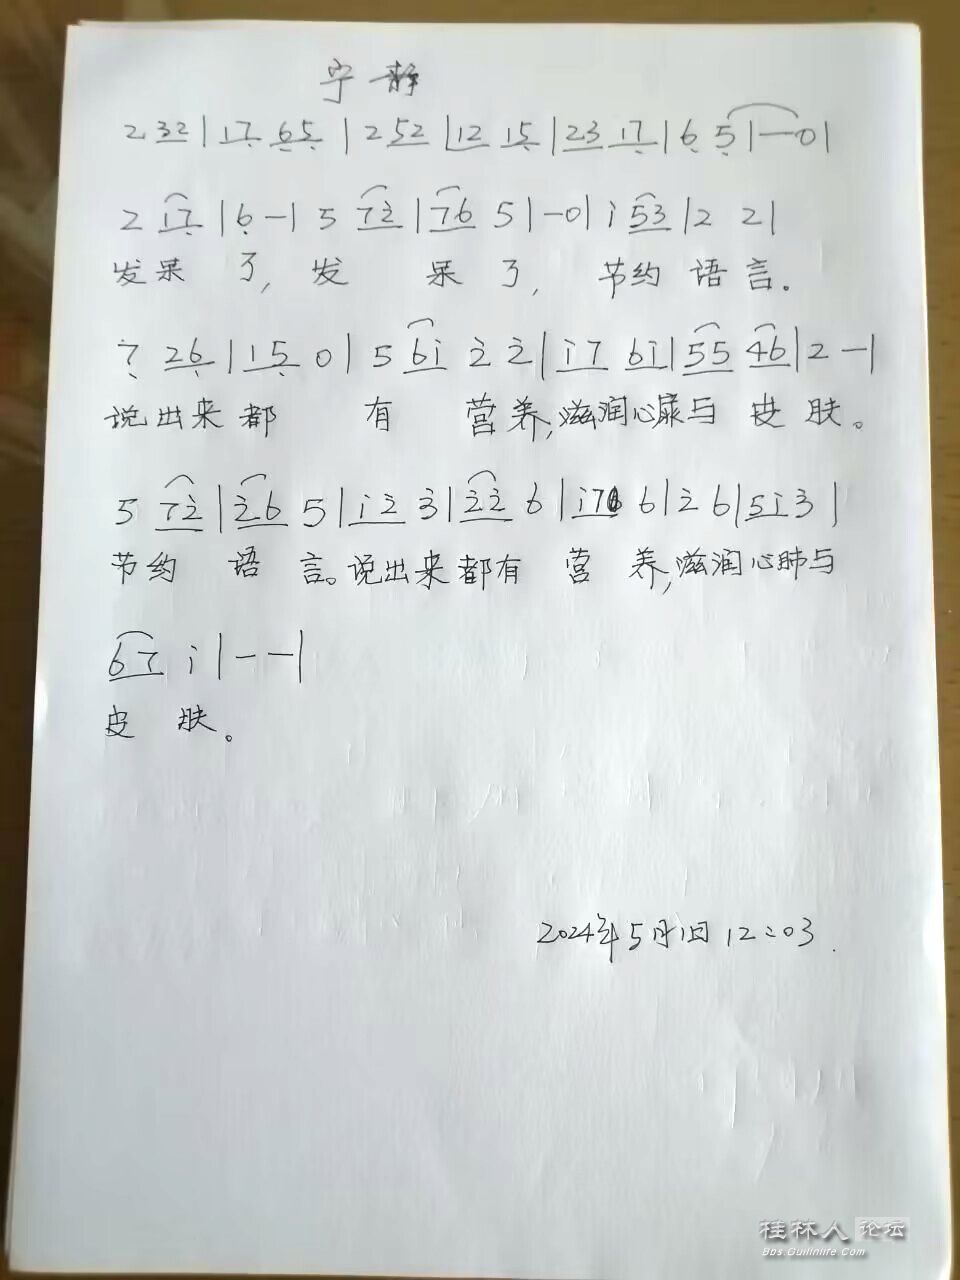 宁静
2 32 | 17 65 | 2 52 | 12 15 | 23 17 | 6 5 | — 0 |
2 i7 | 6 - | 5 72 | 76 5 | - 0 | i 53 | 2 2 |
发呆了,发呆了,节约语言。
7 26 | 15 0 | 5 6i 2 2 | i7 6i | 55 46 | 2 - |
说出来都有营养,滋润心与皮肤。
5 72 | 26 5 | i2 3 | 22 6 | i7 6 | 2 6 | 5i 3 |
节约语言。说出来都有营养,滋润心肺与
67 i | - - |
皮肤。
2024年5月1日12:03.
桂林人论坛
Bbs.Guilinlife.Com